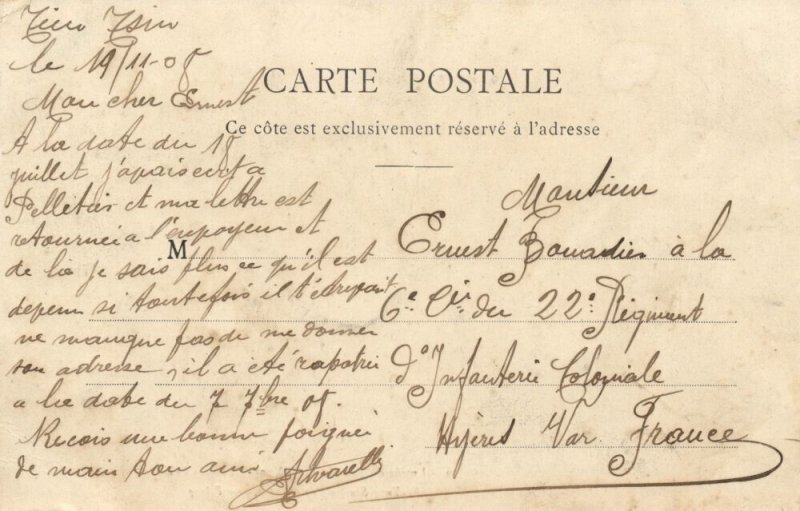 Tien Tsin
le 19/11-05
Mon cher Ernest
A la date du 18
juillet j'avais ecrit a
Pelletier et ma lettre est
retournée a l'envoyeur et
de la je sais plus ce qu'il est
depenu si toutefois il t'écrivait
ne manque pas de me donner
son adresse, il a été rapatrié
a la date du 7 7bre 05.
Recois une bonne poignée
de main ton ami
CARTE POSTALE
Ce côte est exclusivement réservé à l'adresse
M
Monsieur
Ernest à la
6e Cie du 22e Régiment
d'Infanterie Coloniale
Hyères Var France